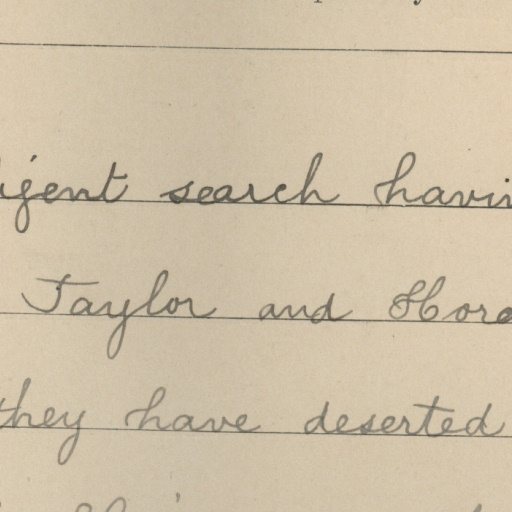 igent search havin
Taylor and Hora
they have deserted